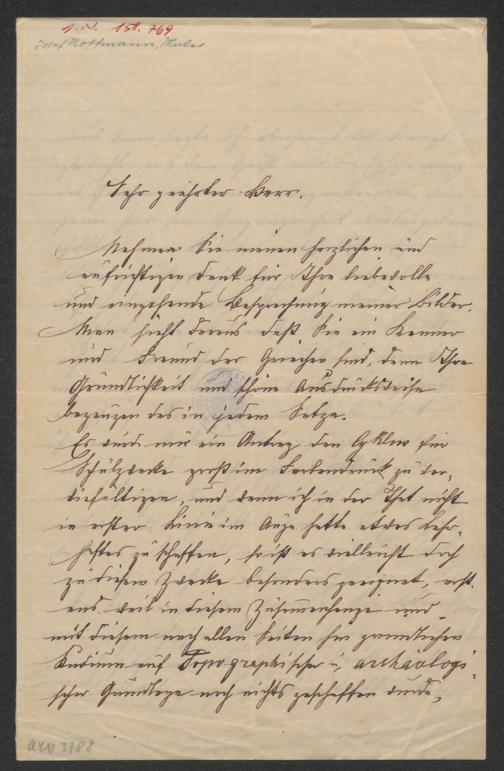 I.N. 158.769
Josef Hoffmann, Maler
Sehr geehrter Herr.
Nehmen Sie meinen herzlichen und
aufrichtigen Dank für Ihre liebevolle
und eingehende Besprechung meiner Bilder.
Man sieht daraus daß Sie ein Kenner
und Freund der Griechen sind, denn Ihre
Gründlichkeit und schöne Ausdrucksweise
bezeugen das in jedem Satze.
Es wurde mir ein Antrag den Cyklus für
Schulzwecke groß im Farbendruck zu ver-
vielfältigen, und wenn ich in der That nicht
in erster Linie im Auge hatte etwas Lehr-
haftes zu schaffen, so ist es vielleicht doch
zu diesem Zwecke besonders geeignet, erst-
ens weil in diesem Zusammenhange und
mit diesem nach allen Seiten hin gründlichen
Studium auf Topographischer u. archäologi-
scher Grundlage noch nichts geschaffen wurde,
AW 3788